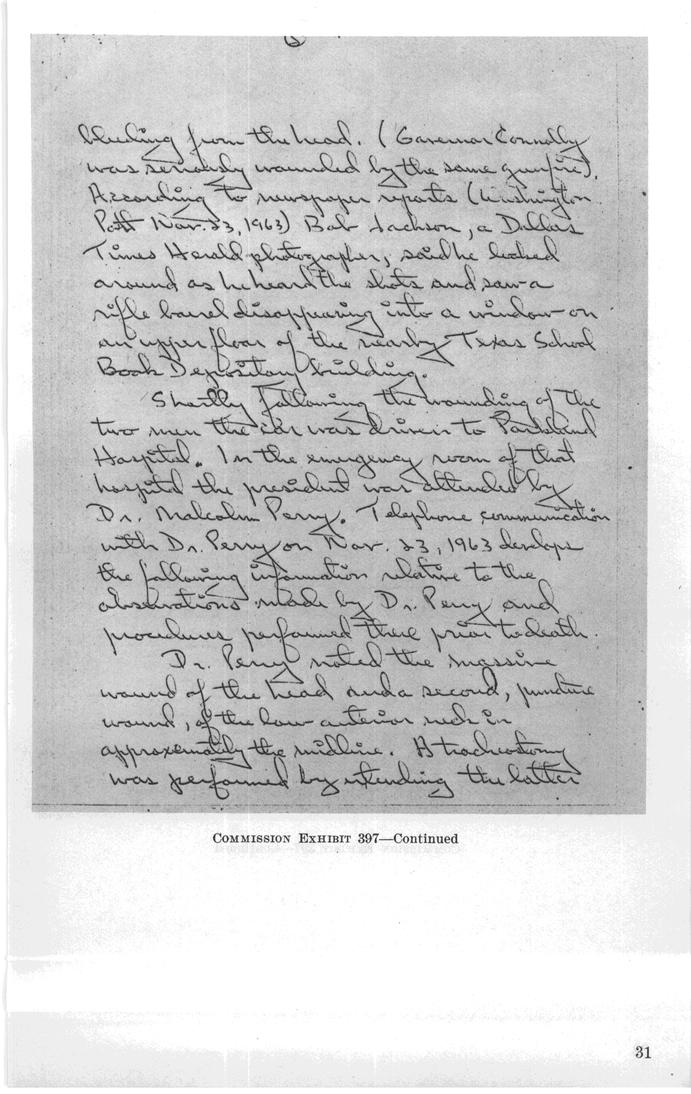 bleeding from the head. (Governor Connolly
was seriously wounded by the same gunfire).
According to newspaper reports (Washington
Post Nov. 23, 1963) Bob Jackson, a Dallas
Times Herald photographer, said he looked
around as he heard the shots and saw a
rifle barrel disappearing into a window on
an upper floor of the nearby Texas School
Book Depository building.
Shortly following the wounding of the
two men the car was driven to Parkland
Hospital. In the emergency room of that
hospital the president was attended by
Dr. Malcolm Perry. Telephone communication
with Dr. Perry on Nov. 23, 1963 develops
the following information relative to the
observations made by Dr. Perry and
procedures performed there prior to death.
Dr. Perry noted the massive
wound of the head and a second, puncture
wound, of the low anterior neck in
approximately the midline. A tracheostomy
was performed by extending the latter
COMMISSION EXHIBIT 397—Continued
31